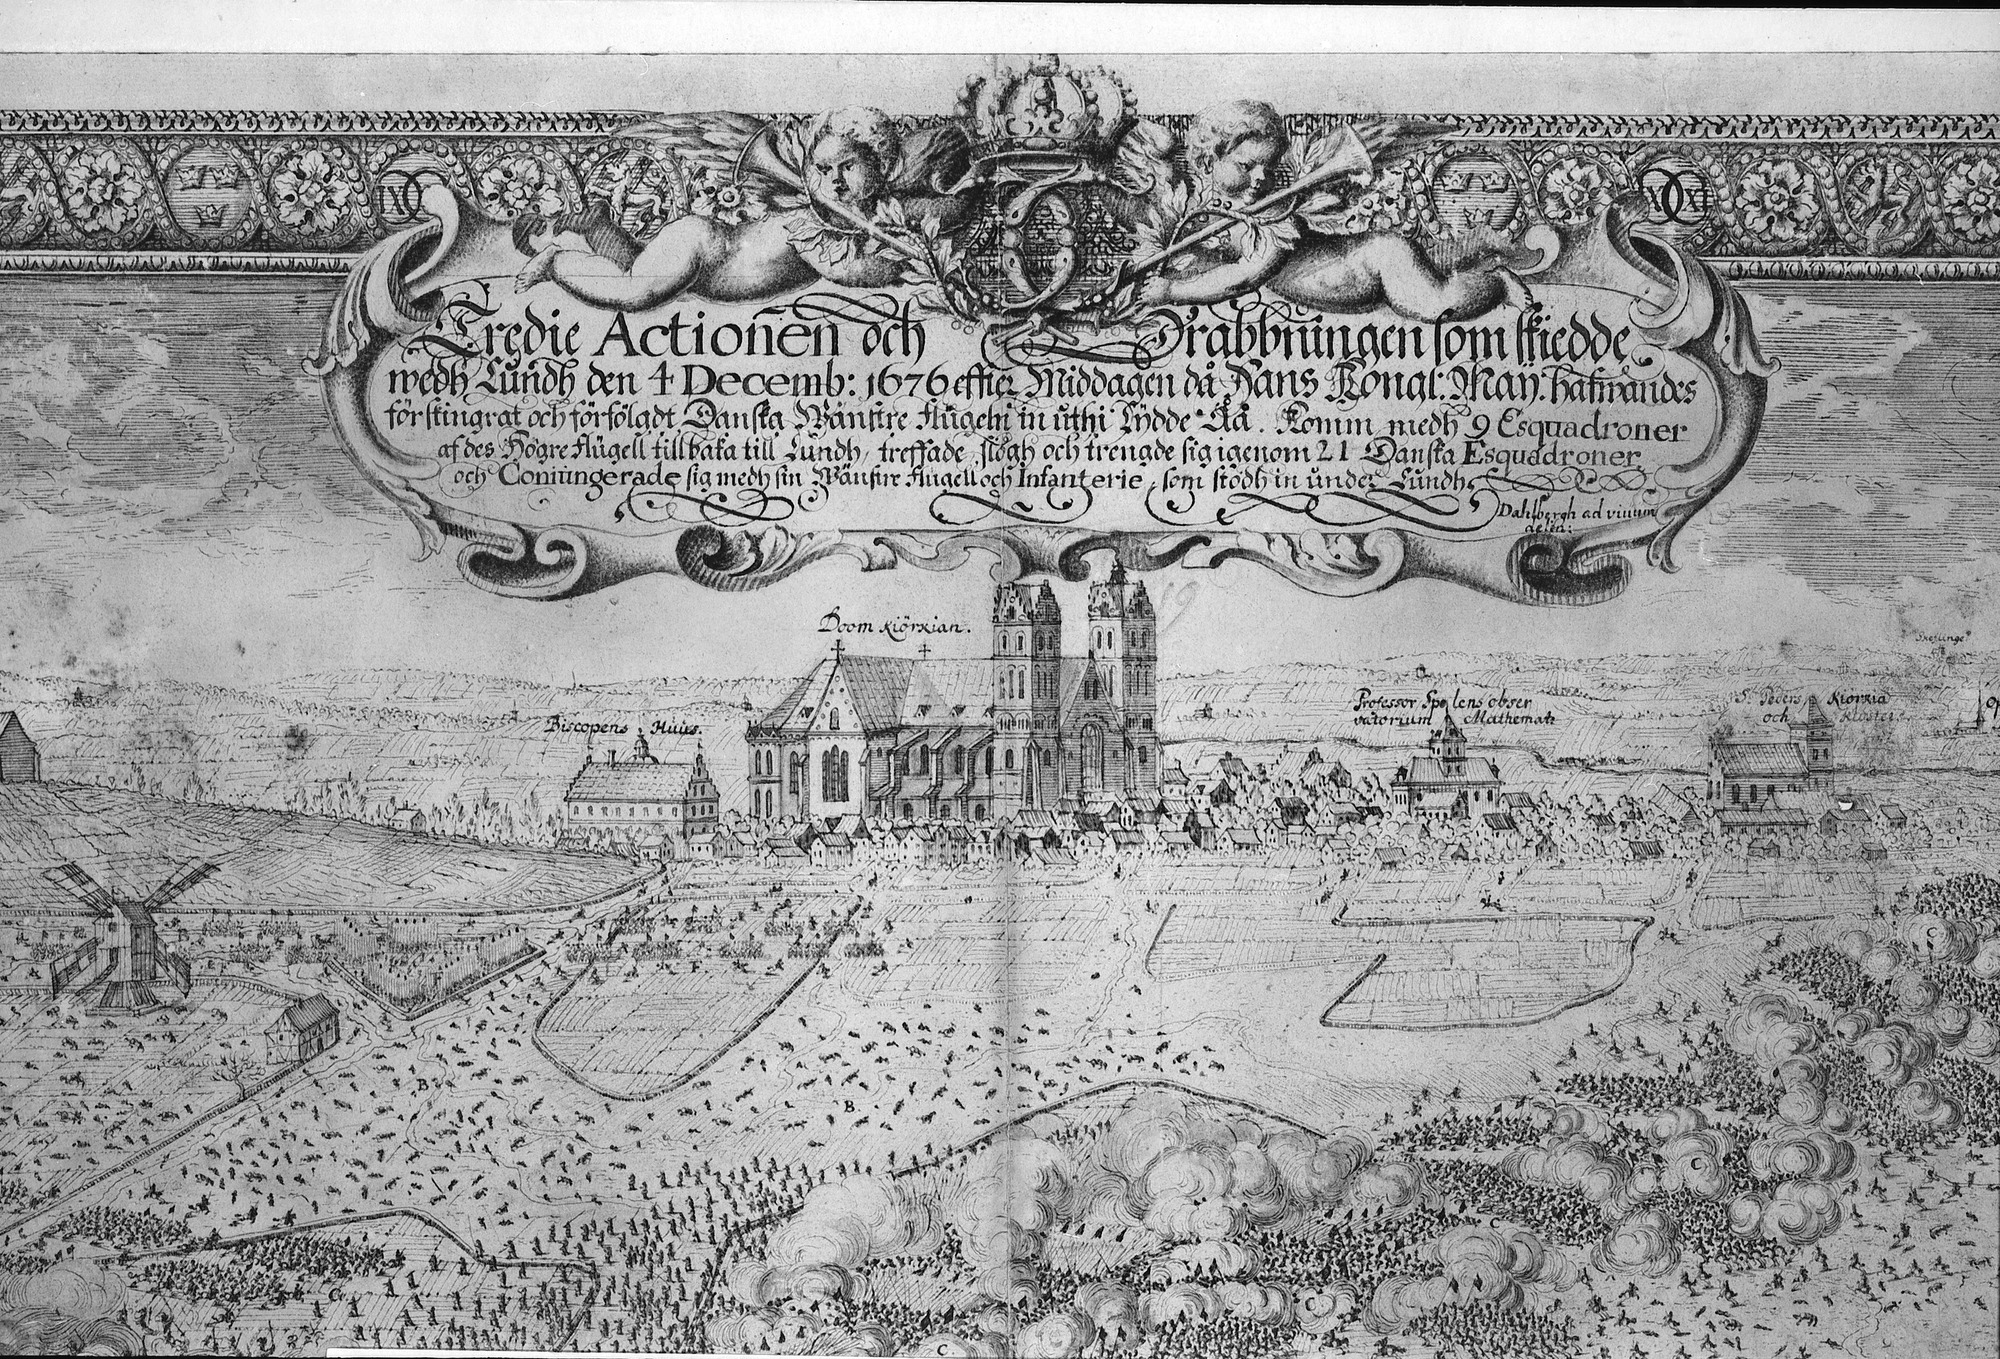 Tredie Actionen och Drabbningen som skiedde
medh Lundh den 4 Decemb: 1676 effter Middagen då Hans Kongl: Maÿ:
förskingrat och förfölgdt Danska Wänstre flügehn in uthi Lÿdde Åå. Komm medh 9 Esquadroner
af des Högre flügell tillbaka till Lundh, treffade, slogh och trengde sig igenom 21 Danska Esquadroner,
och Coniungerade sig medh sin Wänstre flugell och Infanterie, som stodh in under Lundh.
Dahlbergh ad vivum
delin:
19
Doom kiörkian.
Biscopens Huus.
Professor Spolens obser
vatorium Mathemat:
S. Peders kiörkia
och kloster
F
B
B
C
C
C
C
C
C